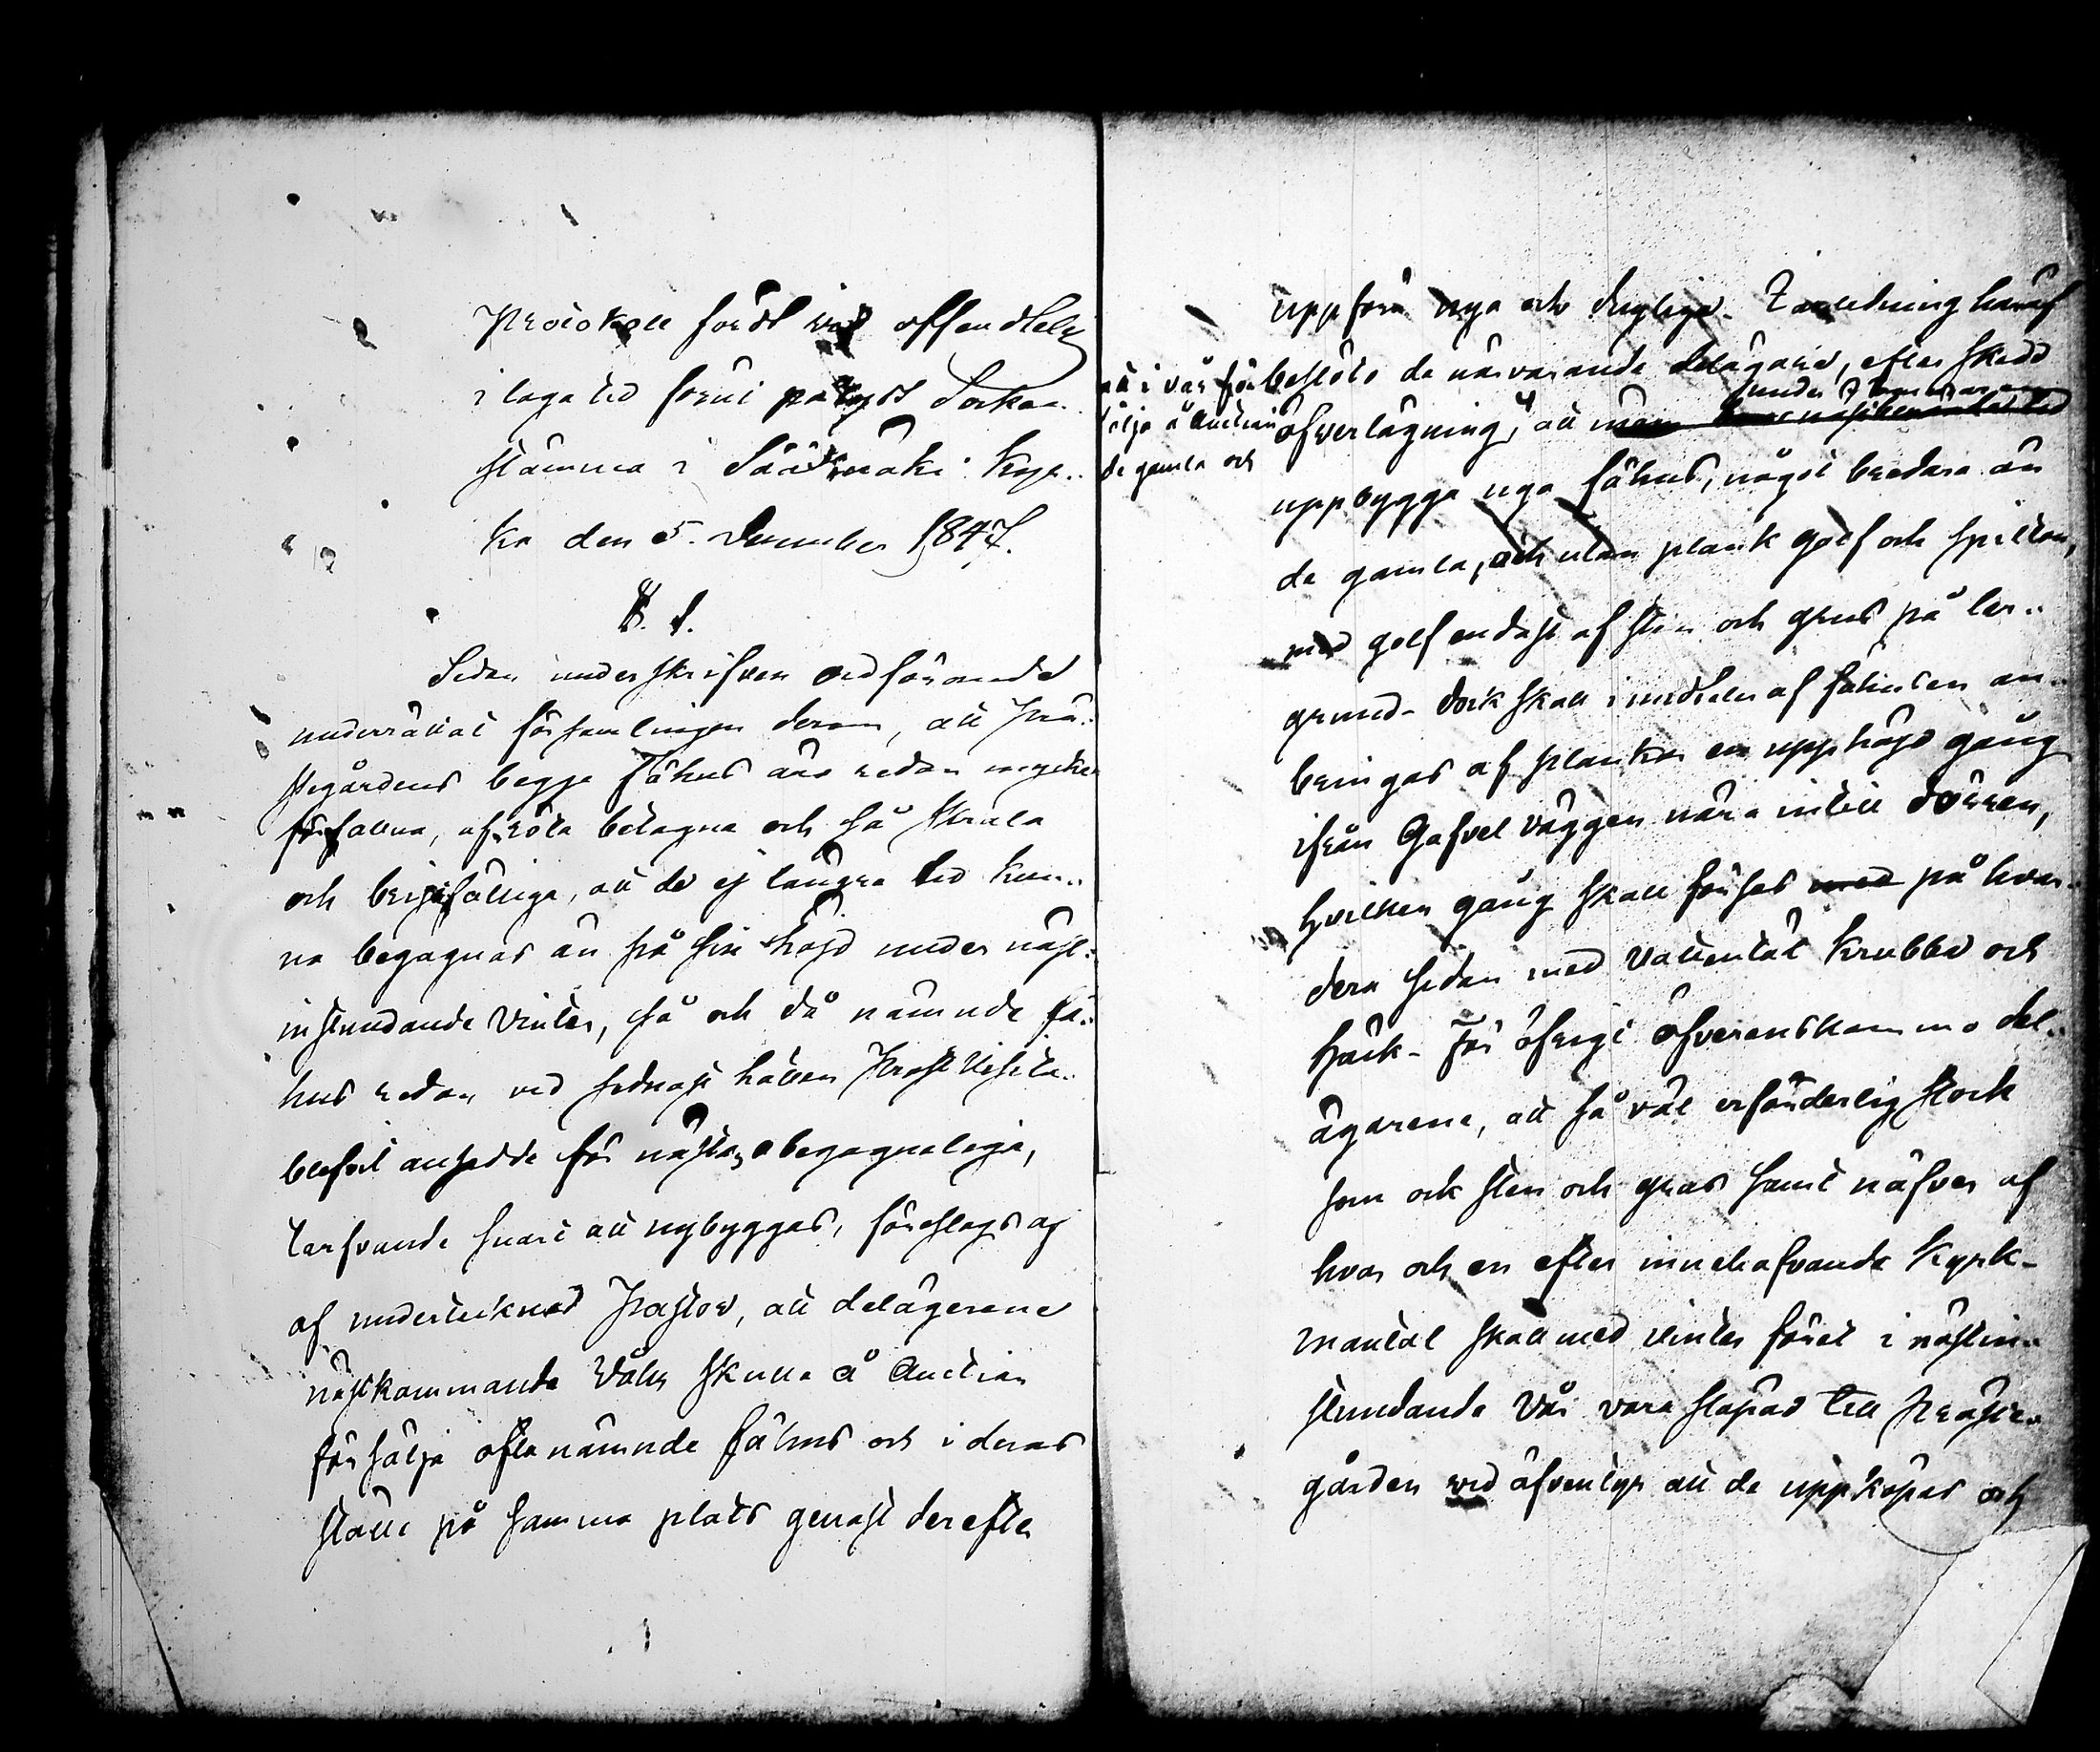 Protokoll fördt vid offendtelig
i laga tid förut pålyst Socken-
stämma i Sääksmäki Kyr-
ka den 5. December 1847.
§. 1.
Sedan underskrifven ordförande
underrättat församlingen derom, att Prä-
stegårdens begge fähus äro redan mycket
förfallna, af röta betagna och så skrala
och bristfälliga, att de ej längre tid kun-
na begagnas än på sin höjd under näst-
instundande Vinter, så och då nämnde fä-
hus redan vid sednast hållen Prost Visita-
blefvit ansedde för nästan obegagneliga,
tarfvande snart att nybyggas, föreslogs af
af undertecknad Pastor, att delägerene
nästkommande Våhr skulle å Auction
försälja ofta nämnde fähus och i deras
ställe på samma plats genast derefter
uppföra nya och dugliga. I anledning häraf
beslöto de närvarande delägare, efter skedd
öfverlägning, att man
att i vår för-
sälja å Auction
de gamla och
uppbygga nya fähus, något bredare än
de gamla, och utan plank golf och spiltor,
med golf endast af sten och grus på ler-
grund. dock skall i midtelen af fähusen an-
bringas af plankor en upphöjd gång
ifrån Gafvel väggen nära intill dörren,
hvilken gång skall förses med på hvar-
dera sidan med vattentät Krubba och
häck. För öfrigt öfverenskommo del-
ägarene, att så väl erforderlig stock
som ock sten och grus samt näfver af
hvar och en efter innehafvande Kyrk-
mantal skall med vinter föret i nästin-
stundande Vår vara släpad till Präste-
gården vid äfventyr att de uppköpas och